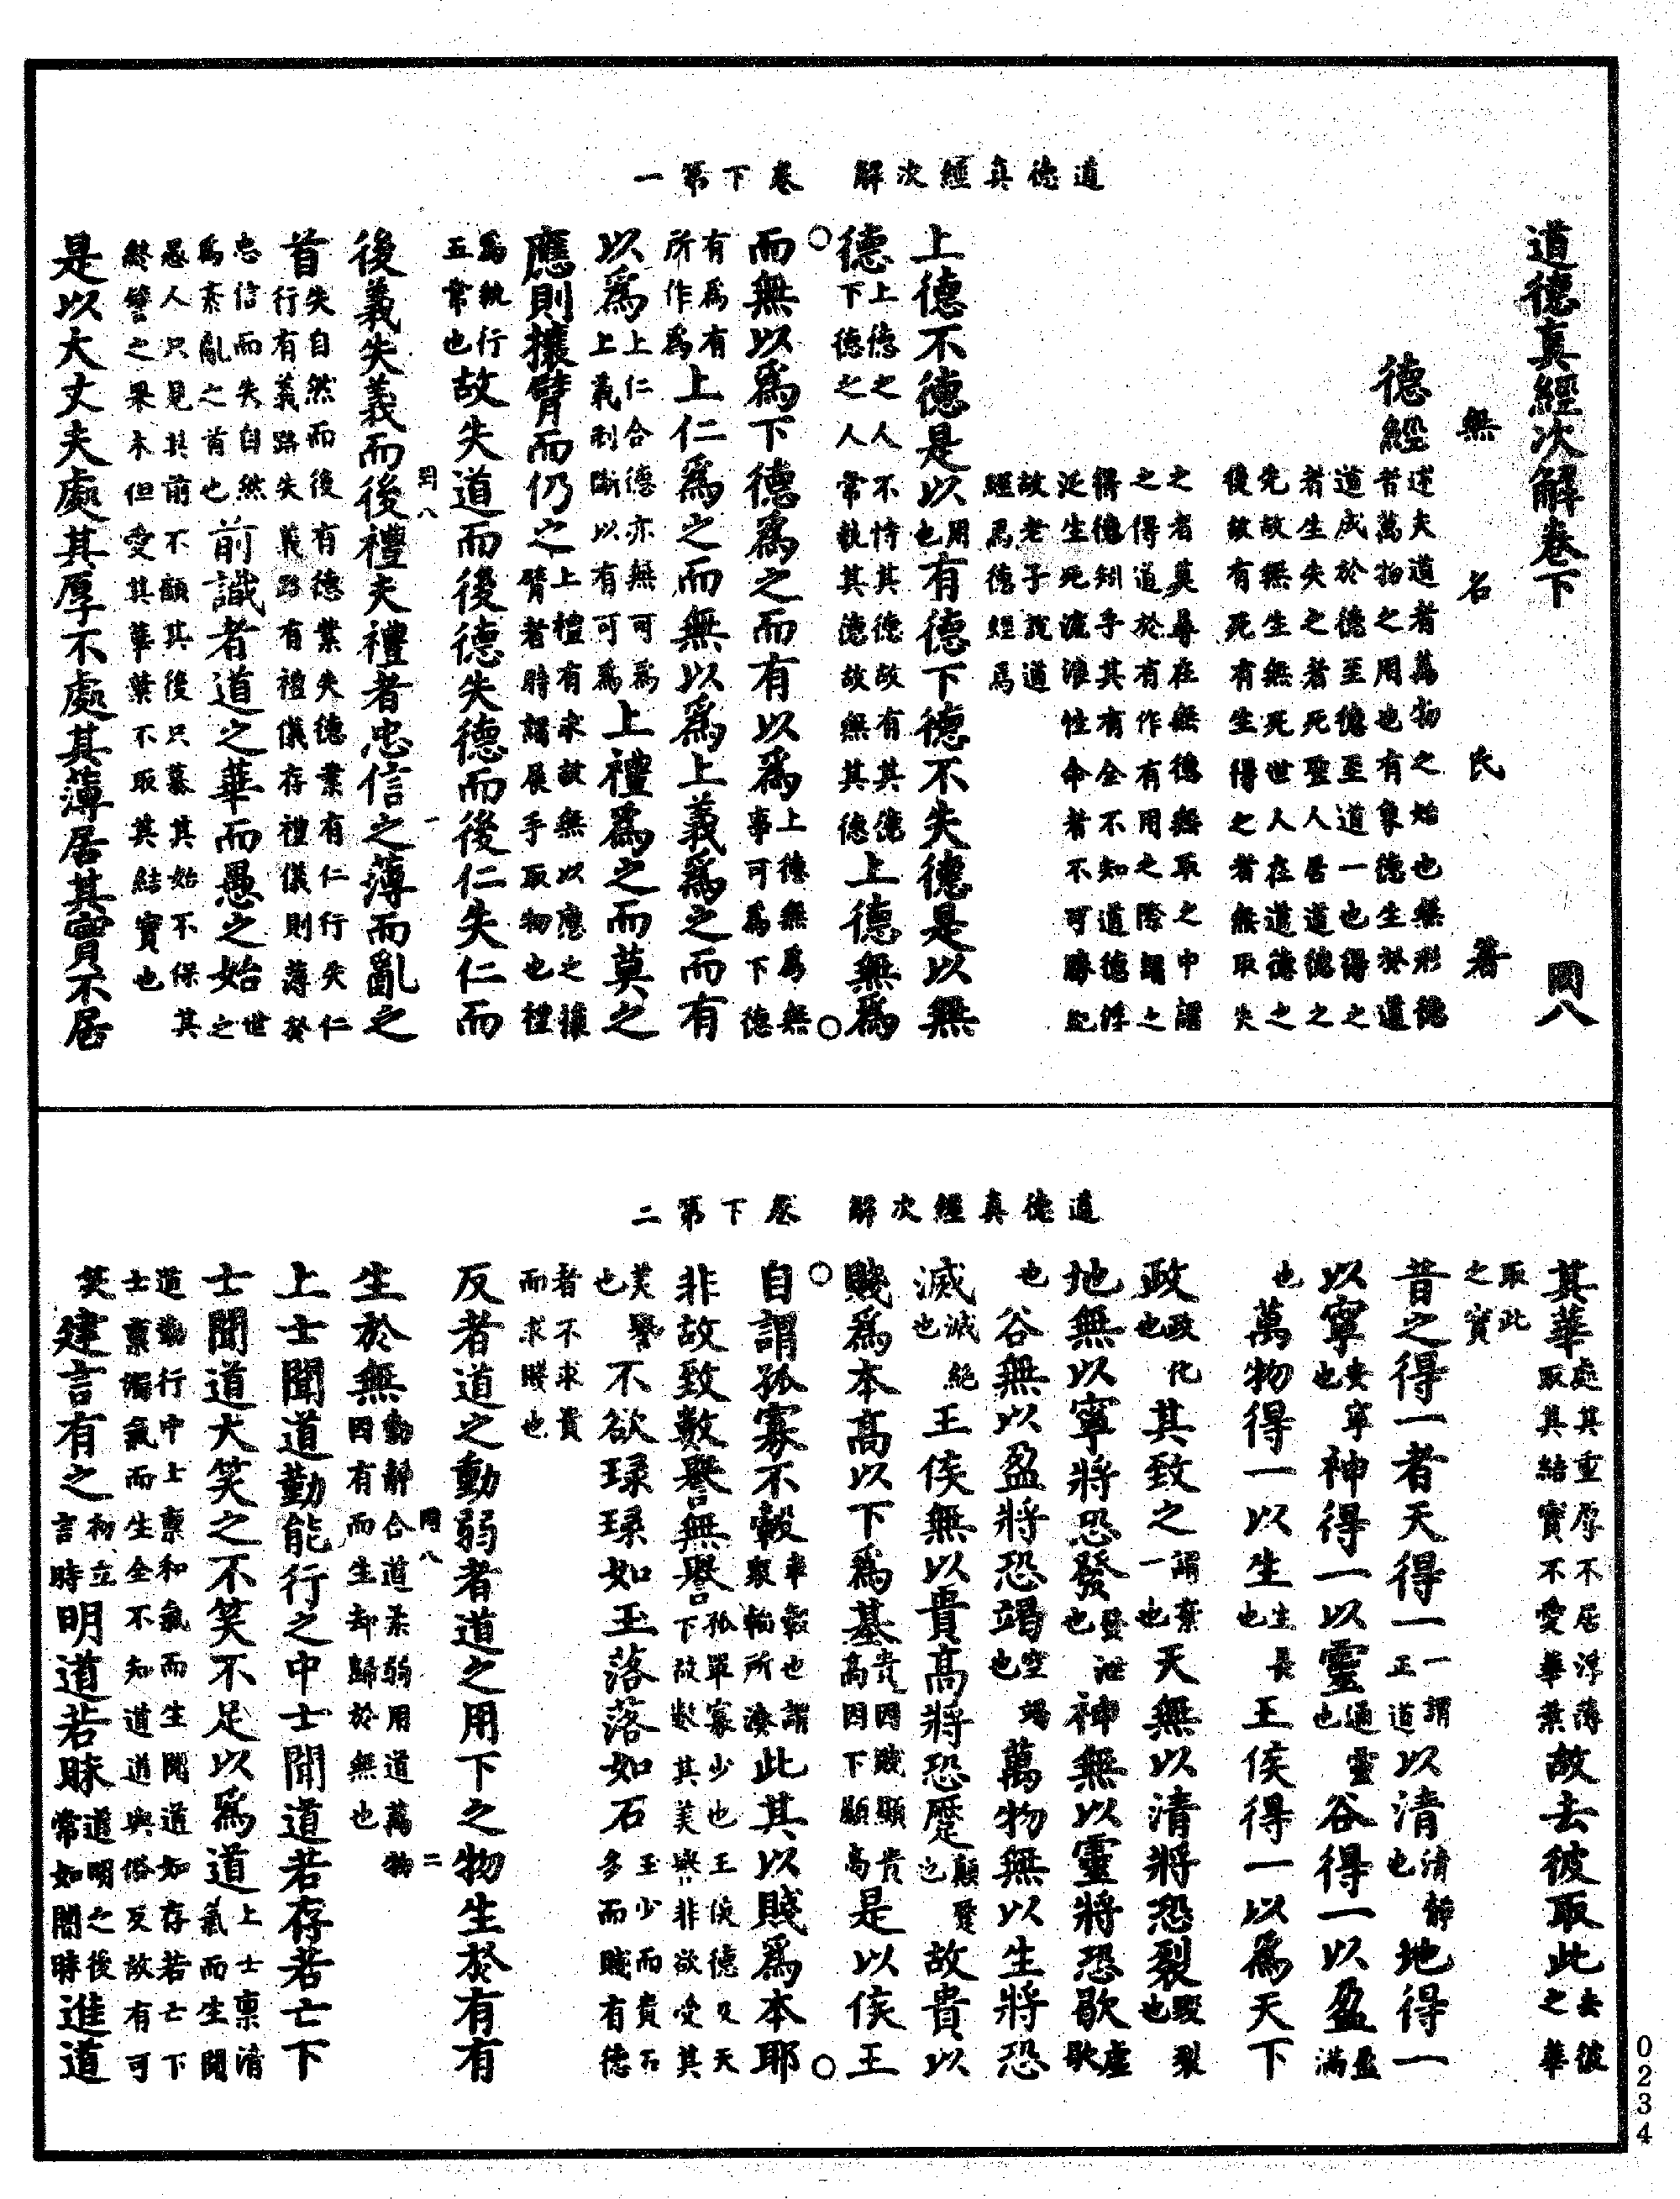 道德真經次解　卷下第一
道德真經次解卷下　　　　　國八
無名氏著
德經
述夫道者萬物之始也無形德
者萬物之用也有象德生於道
道成於德德至道一也得之
者生失之者死聖人居道德之
先故無生無死世人在道德之
後故有死有生得之者無取失
之者莫尋在無德無取之中謂
之得道於有作有用之際謂之
得德知乎其有全不知道德浮
沉生死流浪性命者不可勝紀
故老子說道
經爲德經焉
上德不德是以有德下德不失德是以無
用
也
德上德無爲
上德之人不恃其德故有其德
下德之人常執其德故無其德
而無以爲下德爲之而有以爲
上德無爲無
事可爲下德
有爲有
所作爲
上仁爲之而無以爲上義爲之而有
以爲上禮爲之而莫之
上仁合德亦無可爲
上義制斷以有可爲
應則攘臂而仍之
上禮有求故無以應之攘
臂者時謂展手取物也禮
爲執行
五常也
故失道而後德失德而後仁失仁而
後義失義而後禮夫禮者忠信之薄而亂之
國八　一
首
失自然而後有德業失德業有仁行失仁
行有義路失義路有禮儀存禮儀則薄於
忠信而失自然
爲紊亂之首也
前識者道之華而愚之始
世
之
愚人只見其前不顧其後只慕其始不保其
終譬之果木但愛其華葉不取其結實也
是以大丈夫處其厚不處其薄居其實不居
道德真經次解　卷下第二
其華故去彼取此
處其重厚不居浮薄
取其結實不愛華葉
去彼
之華
取此
之實
昔之得一者天得一以清地得一
一謂
正道
清靜
也
以寧神得一以靈谷得一以盈
安寧
也
通靈
也
盈
滿
也
萬物得一以生王侯得一以爲天下
生長
也
政其致之天無以清將恐裂
政化
也
謂棄
一也
毀裂
也
地無以寧將恐發神無以靈將恐歇
發泄
也
虛
歇
也
谷無以盈將恐竭萬物無以生將恐
空竭
也
滅王侯無以貴高將恐蹷故貴以
滅絕
也
顛蹷
也
賤爲本高以下爲基是以侯王
貴因賤顯貴
高因下顯高
自謂孤寡不轂此其以賤爲本耶
車轂也謂
衆輪所湊
非故致數譽無譽
孤單寡少也王侯德及天
下故數其美與非欲受其
美譽
也
不欲琭琭如玉落落如石
玉少而貴石
多而賤有德
者不求貴
而求賤也
反者道之動弱者道之用下之物生於有有
生於無
動靜合道柔弱用道萬物
因有而生却歸於無也
國八　二
上士聞道勤能行之中士聞道若存若亡下
士聞道大笑之不笑不足以爲道
上士稟清
氣而生聞
道勤行中士稟和氣而生聞道如存若亡下
士稟濁氣而生全不知道道與俗反故有可
笑
建言有之明道若昧進道
初立
言時
道明之後
常如闇時
0234